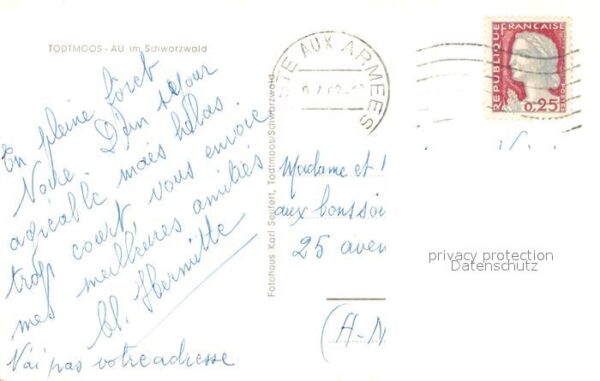 TODTMOOS - AU im Schwarzwald
En pleine forêt
Noire. D'un séjour
agréable mais hélas
trop court, vous envoie
mes meilleures amitiés
Cl. Hermitte
N'ai pas votre adresse
Fotohaus Karl Seufert, Todtmoos/Schwarzwald
STE AUX ARMEES
REPUBLIQUE FRANCAISE
0,25
Madame et
aux bons soin
25 aven
(A-M
privacy protection
Datenschutz